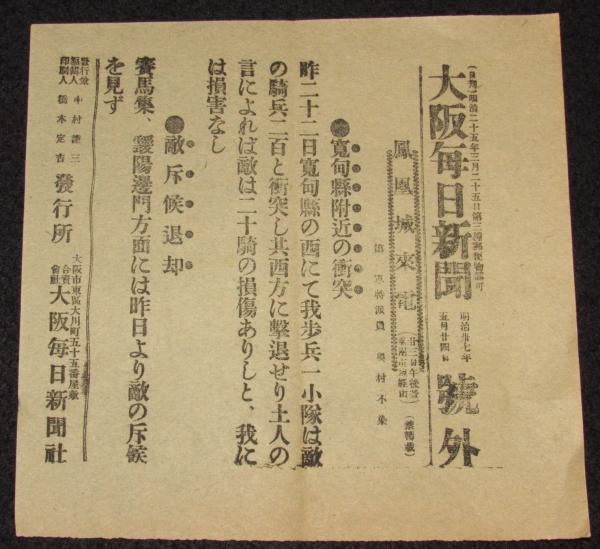 (日刊)(明治二十五年三月二十五日第三種郵便物認可)
大阪毎日新聞
明治卅七年
五月廿四日
號外
鳳凰城來電
(禁轉載)
奥村不染
●寬甸縣附近の衝突
昨二十二日寬甸縣の西にて我歩兵一小隊は敵
の騎兵二百と衝突し其西方に撃退せり土人の
言によれは敵は二十騎の損傷ありしと、我に
は損害なし
●敵斥候退却
賽馬集、靉陽邊門方面には昨日より敵の斥候
を見ず
發行兼
編輯人
中村謙三
印刷人
橋本定吉
發行所
大阪市東區大川町五十五番屋敷
合資
會社
大阪毎日新聞社